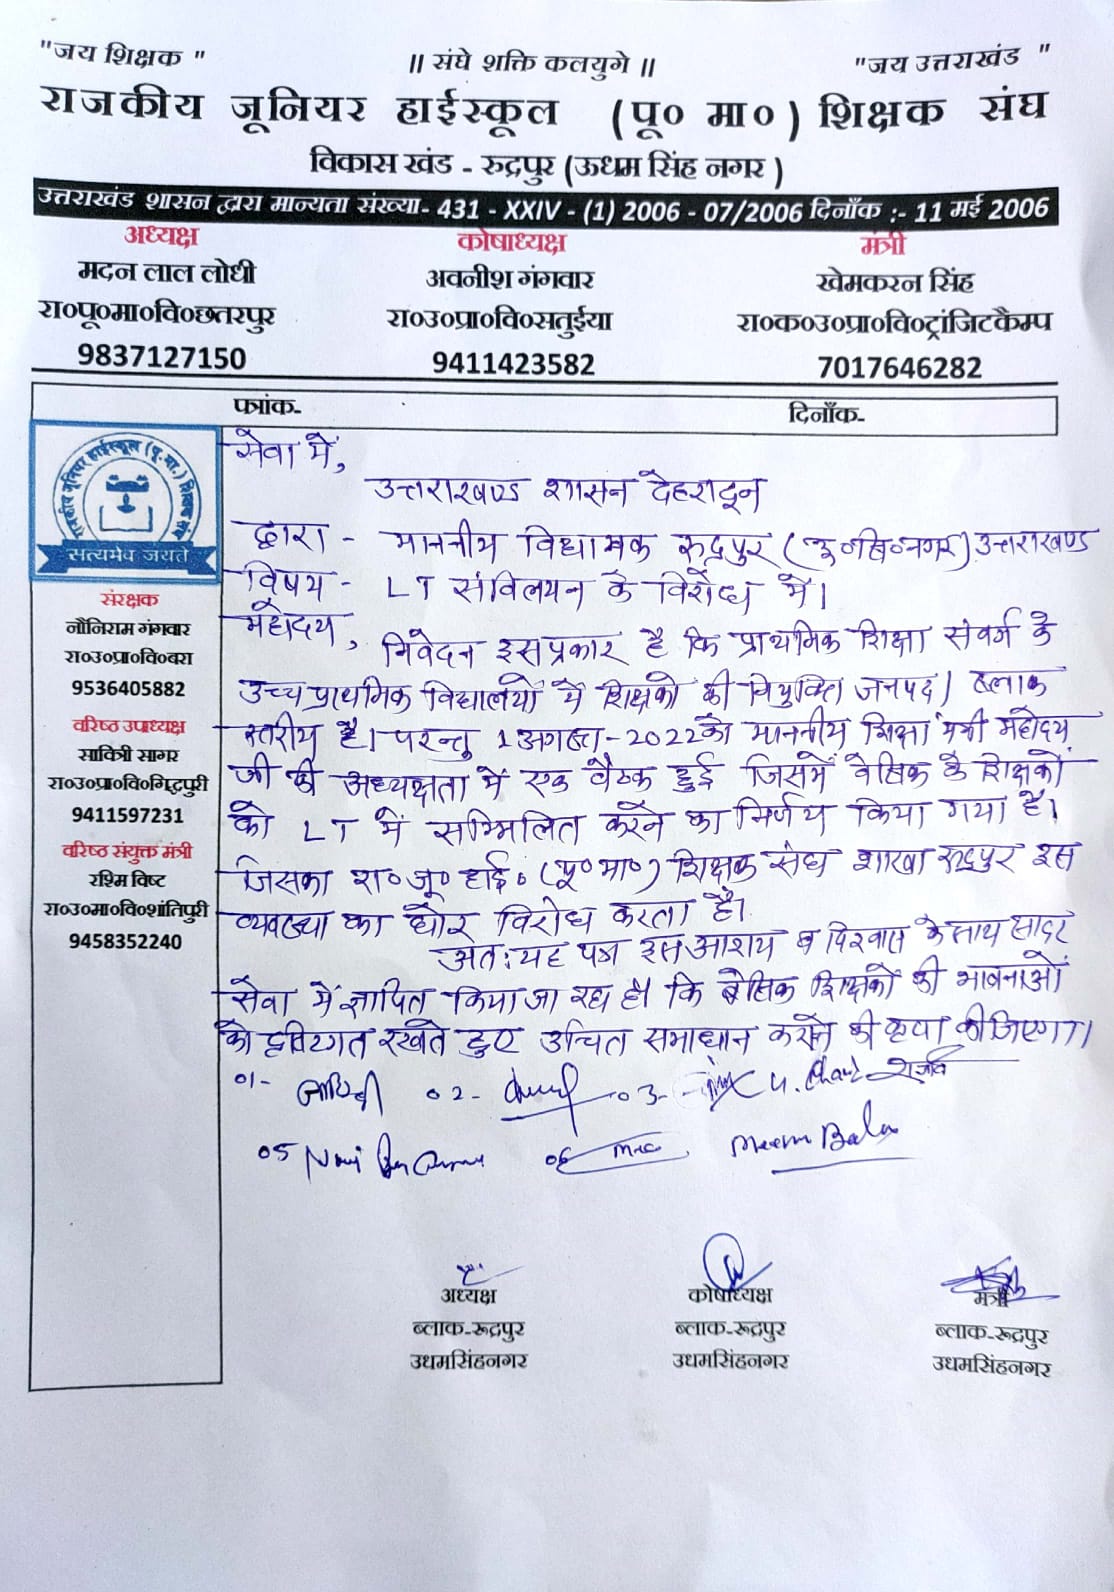 "जय शिक्षक "
॥ संघे शक्ति कलयुगे ॥
"जय उत्तराखंड "
राजकीय जूनियर हाईस्कूल (पू० मा०) शिक्षक संघ
विकास खंड - रुद्रपुर (ऊधम सिंह नगर )
उत्तराखंड शासन द्वारा मान्यता संख्या- 431 - XXIV - (1) 2006 - 07/2006 दिनाँक :- 11 मई 2006
अध्यक्ष
मदन लाल लोधी
रा०पू०मा०वि०छतरपुर
9837127150
कोषाध्यक्ष
अवनीश गंगवार
रा०उ०प्रा०वि०सतुईया
9411423582
मंत्री
खेमकरन सिंह
रा०क०उ०प्रा०वि०ट्रांजिटकैम्प
7017646282
पत्रांक-
दिनाँक-
राजकीय जूनियर हाईस्कूल (पू.मा.) शिक्षक संघ
सत्यमेव जयते
संरक्षक
नौनिराम गंगवार
रा०उ०प्रा०वि०बरा
9536405882
वरिष्ठ उपाध्यक्ष
सावित्री सागर
रा०उ०प्रा०वि०गिद्दपुरी
9411597231
वरिष्ठ संयुक्त मंत्री
रश्मि विष्ट
रा०उ०मा०वि०शांतिपुरी
9458352240
सेवा में,
उत्तराखण्ड शासन देहरादून
द्वारा - माननीय विधायक रुद्रपुर (उ०सि०नगर) उत्तराखण्ड
विषय - LT संविलयन के विरोध में।
महोदय,
निवेदन इस प्रकार है कि प्राथमिक शिक्षा संवर्ग के
उच्च प्राथमिक विद्यालयों में शिक्षकों की नियुक्ति जनपद। ब्लाक
स्तरीय है। परन्तु 1 अगस्त-2022 को माननीय शिक्षा मंत्री महोदय
जी की अध्यक्षता में एक बैठक हुई जिसमें बेसिक के शिक्षकों
को LT में सम्मिलित करने का निर्णय किया गया है।
जिसका रा० जू० हाई० (पू० मा०) शिक्षक संघ शाखा रुद्रपुर इस
व्यवस्था का घोर विरोध करता है।
अतः यह पत्र इस आशय व विश्वास के साथ सादर
सेवा में ज्ञापित किया जा रहा है। कि बेसिक शिक्षकों की भावनाओं
को दृष्टिगत रखते हुए उचित समाधान कराने की कृपा कीजिएगा।
01- 02- 03-
05 06 Meena Bala
अध्यक्ष
ब्लाक-रूद्रपुर
उधमसिंहनगर
कोषाध्यक्ष
ब्लाक-रूद्रपुर
उधमसिंहनगर
मंत्री
ब्लाक-रूद्रपुर
उधमसिंहनगर